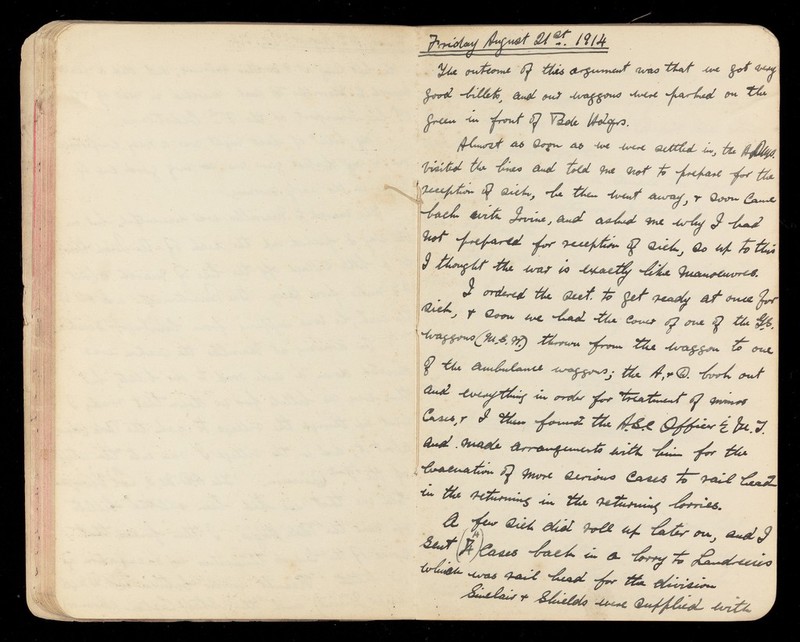 Friday August 21st. 1914
The outcome of this argument was that we got very
good billets, and our waggons were parked on the
green in front of Bde Hdqrs.
Almost as soon as we were settled in, the A.D.M.S.
visited the lines and told me not to prepare for the
reception of sick, he then went away, & soon came
back with Irvine, and asked me why I had
not prepared for reception of sick, so up to this
I thought the war is exactly like manoeuvres.
I ordered the sect. to get ready at once for
sick, & soon we had the cover of one of the G.S.
waggons (M.S.W.) thrown from the waggon to one
of the ambulance waggons; the A. & D. book out
and everything in order for treatment of minor
cases, & I then found the A.S.C Officer i/c M.T.
and made arrangements with him for the
evacuation of more serious cases to rail head
in the returning in the returning lorries.
A few sick did roll up later on, and I
sent cases back in a lorry to Landrecies
which was rail head for the division
Sinclair & Shields were supplied with